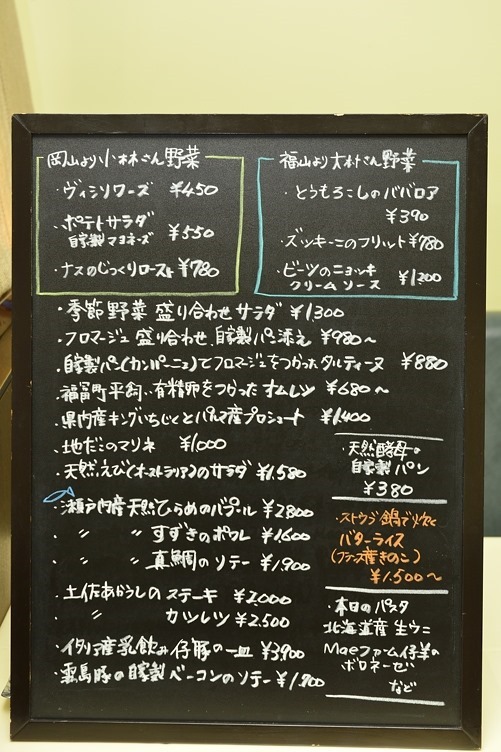 岡山より小林さん野菜
・ヴィシソワーズ ¥450
・ポテトサラダ
自家製マヨネーズ ¥550
・ナスのじっくりロースト ¥780
福山より大林さん野菜
・とうもろこしのババロア
¥390
・ズッキーニのフリット ¥780
・ビーツのニョッキ
クリームソース ¥1200
・季節野菜 盛り合わせ サラダ ¥1,300
・フロマージュ 盛り合わせ 自家製パン添え ¥980〜
・自家製パン(カンパーニュ)でフロマージュをつかったタルティーヌ ¥880
・福富町平飼い有精卵をつかったオムレツ ¥680〜
・県内産キングいちじくとパルマ産プロシュート ¥1,400
・地だこのマリネ ¥1,000
・天然えび(オーストラリア)のサラダ ¥1,580
・瀬戸内産 天然ひらめのバプール ¥2800
〃 〃 すずきのポワレ ¥1600
〃 〃 真鯛のソテー ¥1,900
・土佐あかうしの ステーキ ¥2,000
〃 カツレツ ¥2,500
・イタリア産乳飲み仔豚の一皿 ¥3,900
・雲島豚の自家製ベーコンのソテー ¥1,900
・天然酵母の
自家製パン
¥380
・ストウブ鍋で炊く
バターライス
(フランス産きのこ)
¥1,500〜
・本日のパスタ
北海道産 生ウニ
Maeファーム仔羊の
ボロネーゼ
など